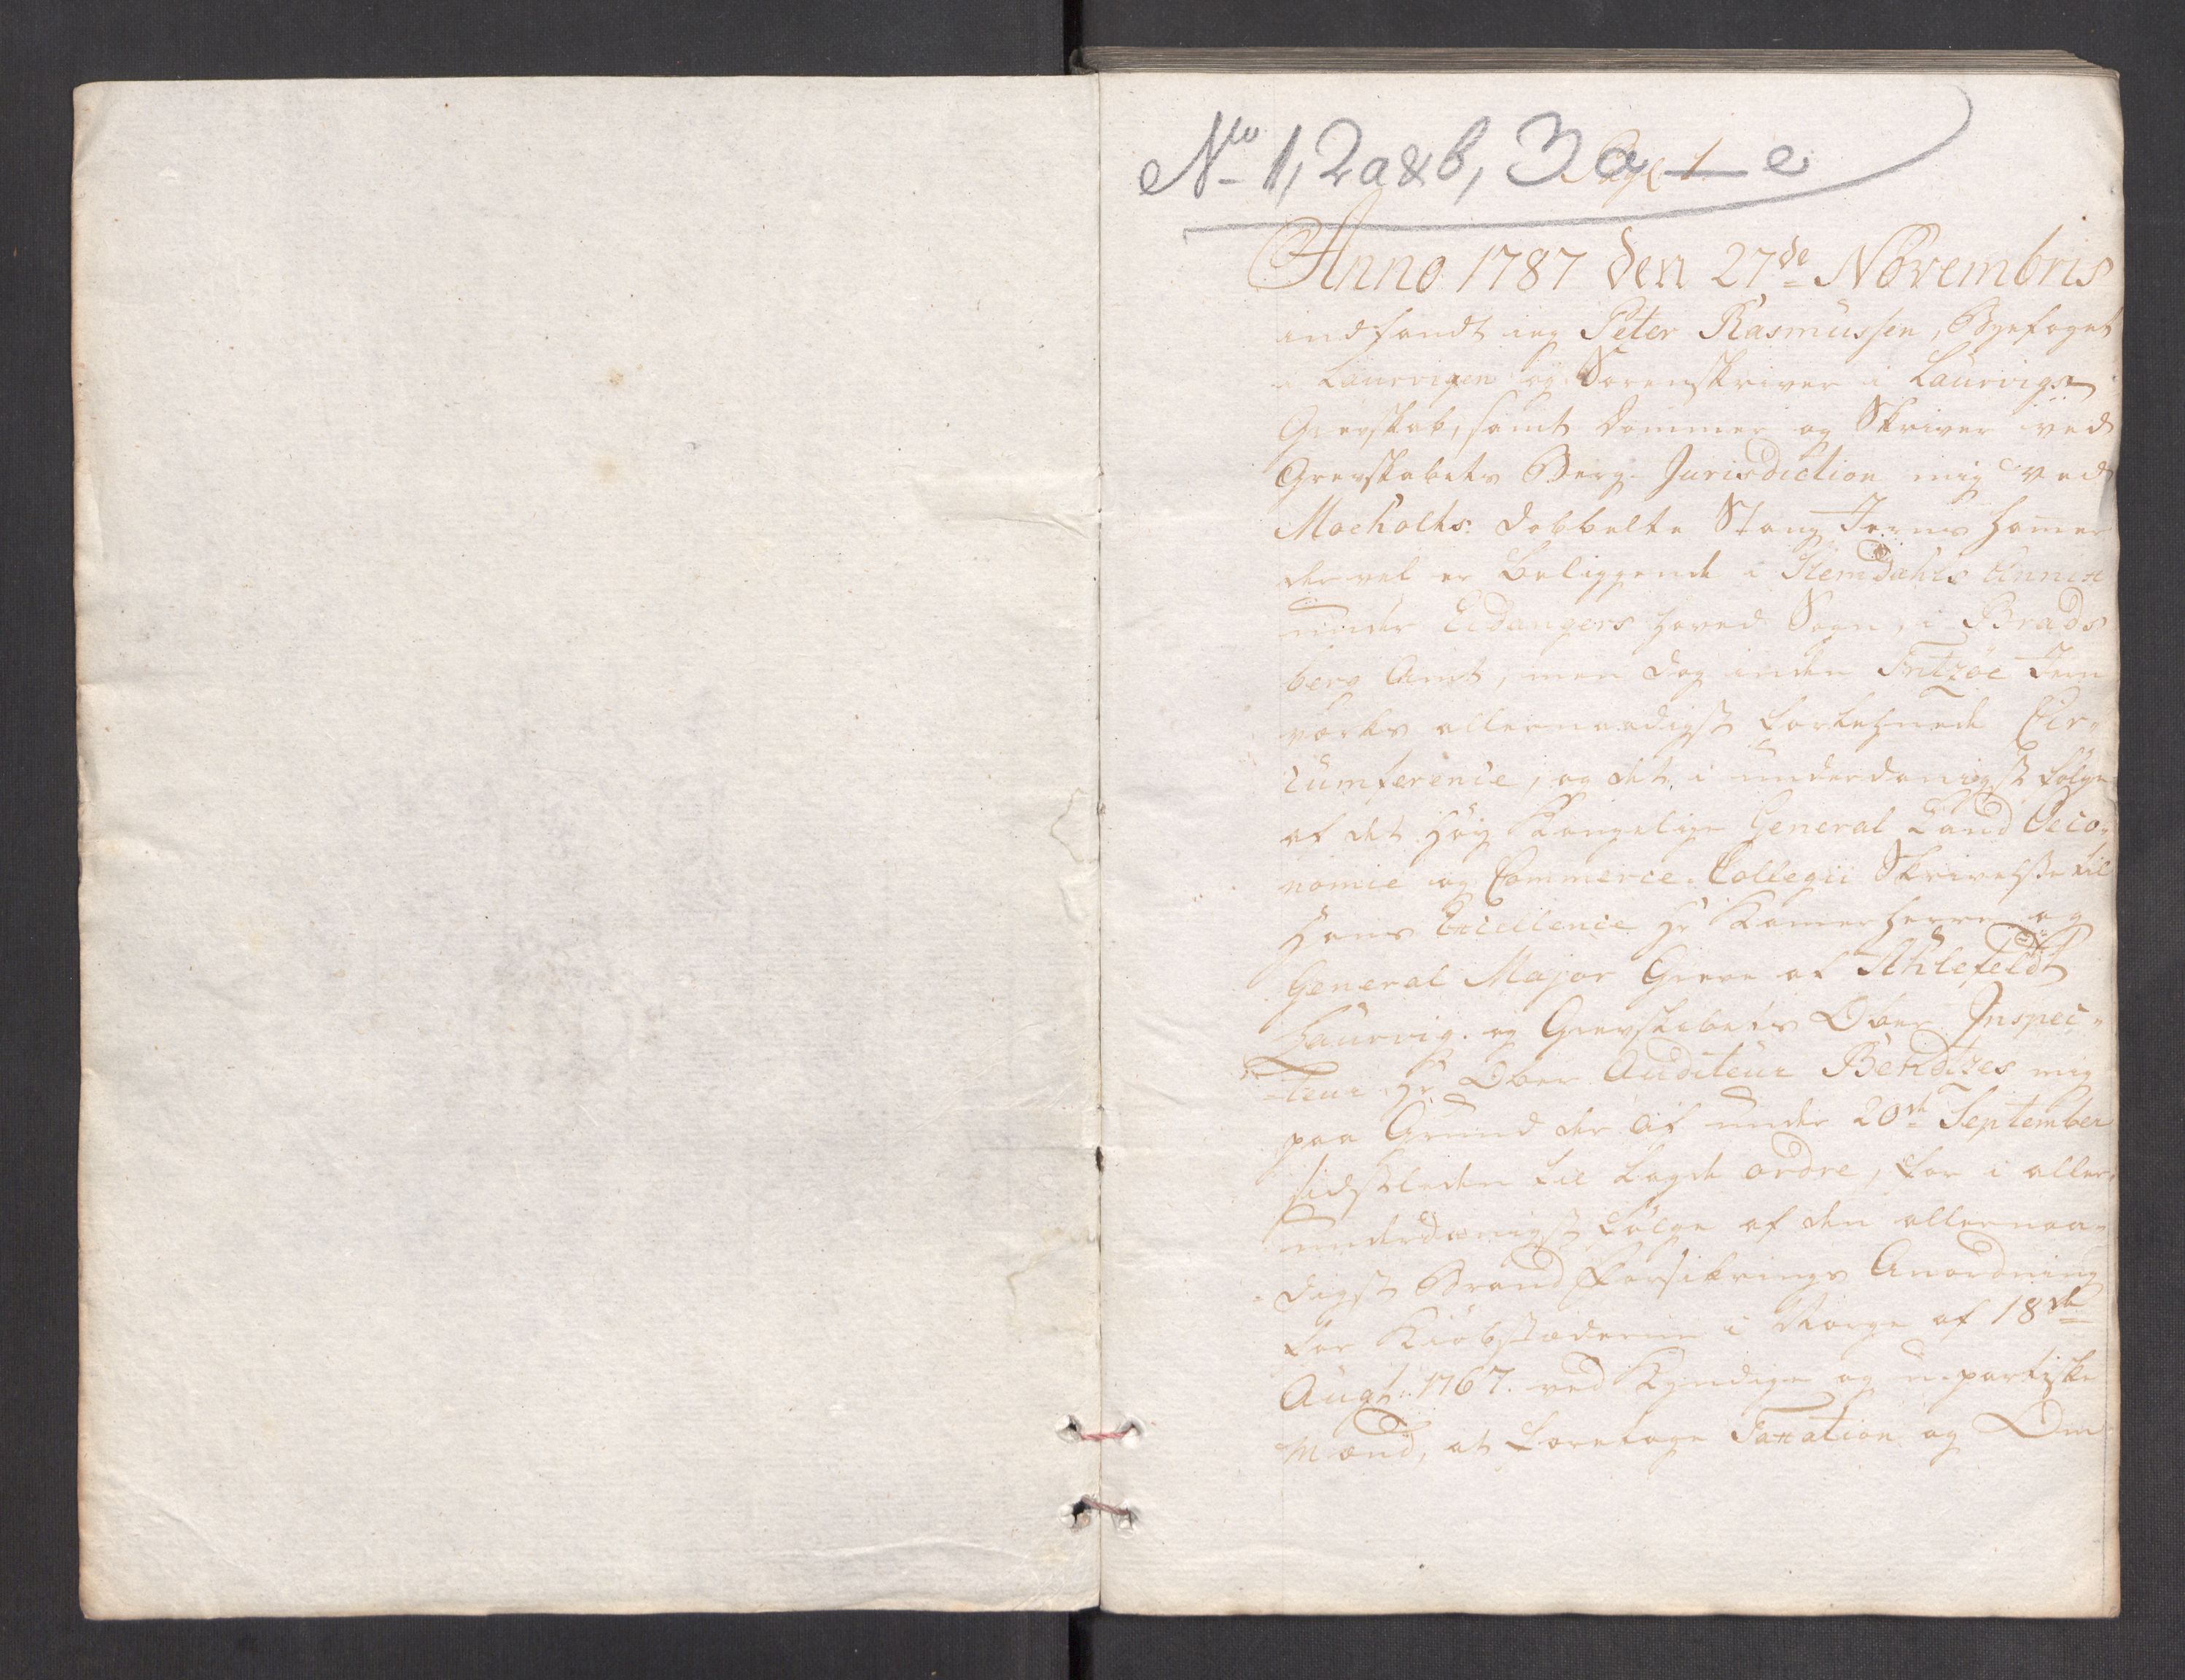 No 1, 2 a & b, 3 a — e
Pag: 1.
Anno 1787 den 27de Novembris
indfandt ieg Peter Rasmussen, Byefoget
i Laurvigen og Sorenskriver i Laurvigs
Grevskab, samt Dommer og Skriver ved
Grevskabets Berg-Jurisdiction mig ved
Moeholts dobbelte Stang Jerns Hamer
der vel er beliggende i Slemdahls Annex
under Eidangers Hoved Sogn, i Brads
berg Amt, men dog inden Fritzöe Jern
værks allernaadigst forlehnede Cir-
cumference, og det i underdanigst følge
af det Høy Kongelige General Land Oeco-
nomie og Commerce-Collegii Skrivelse til
Hans Excellence Hr Kamerherre og
General Major Greve af Ahlefeldt
Laurvig. og Grevskabets Ober Inspec-
-teur Hr Ober Auditeur Bendtzes mig
paa Grund der af under 20de September
sidstleden til lagde ordre, for i aller-
underdanigst følge af den allernaa-
digst Brand Forsikrings Anordning
for Kiøbstæderne i Norge af 18de
Augt: 1767. ved Kyndige og u-partiske
Mænd, at foretage Taxation og Om